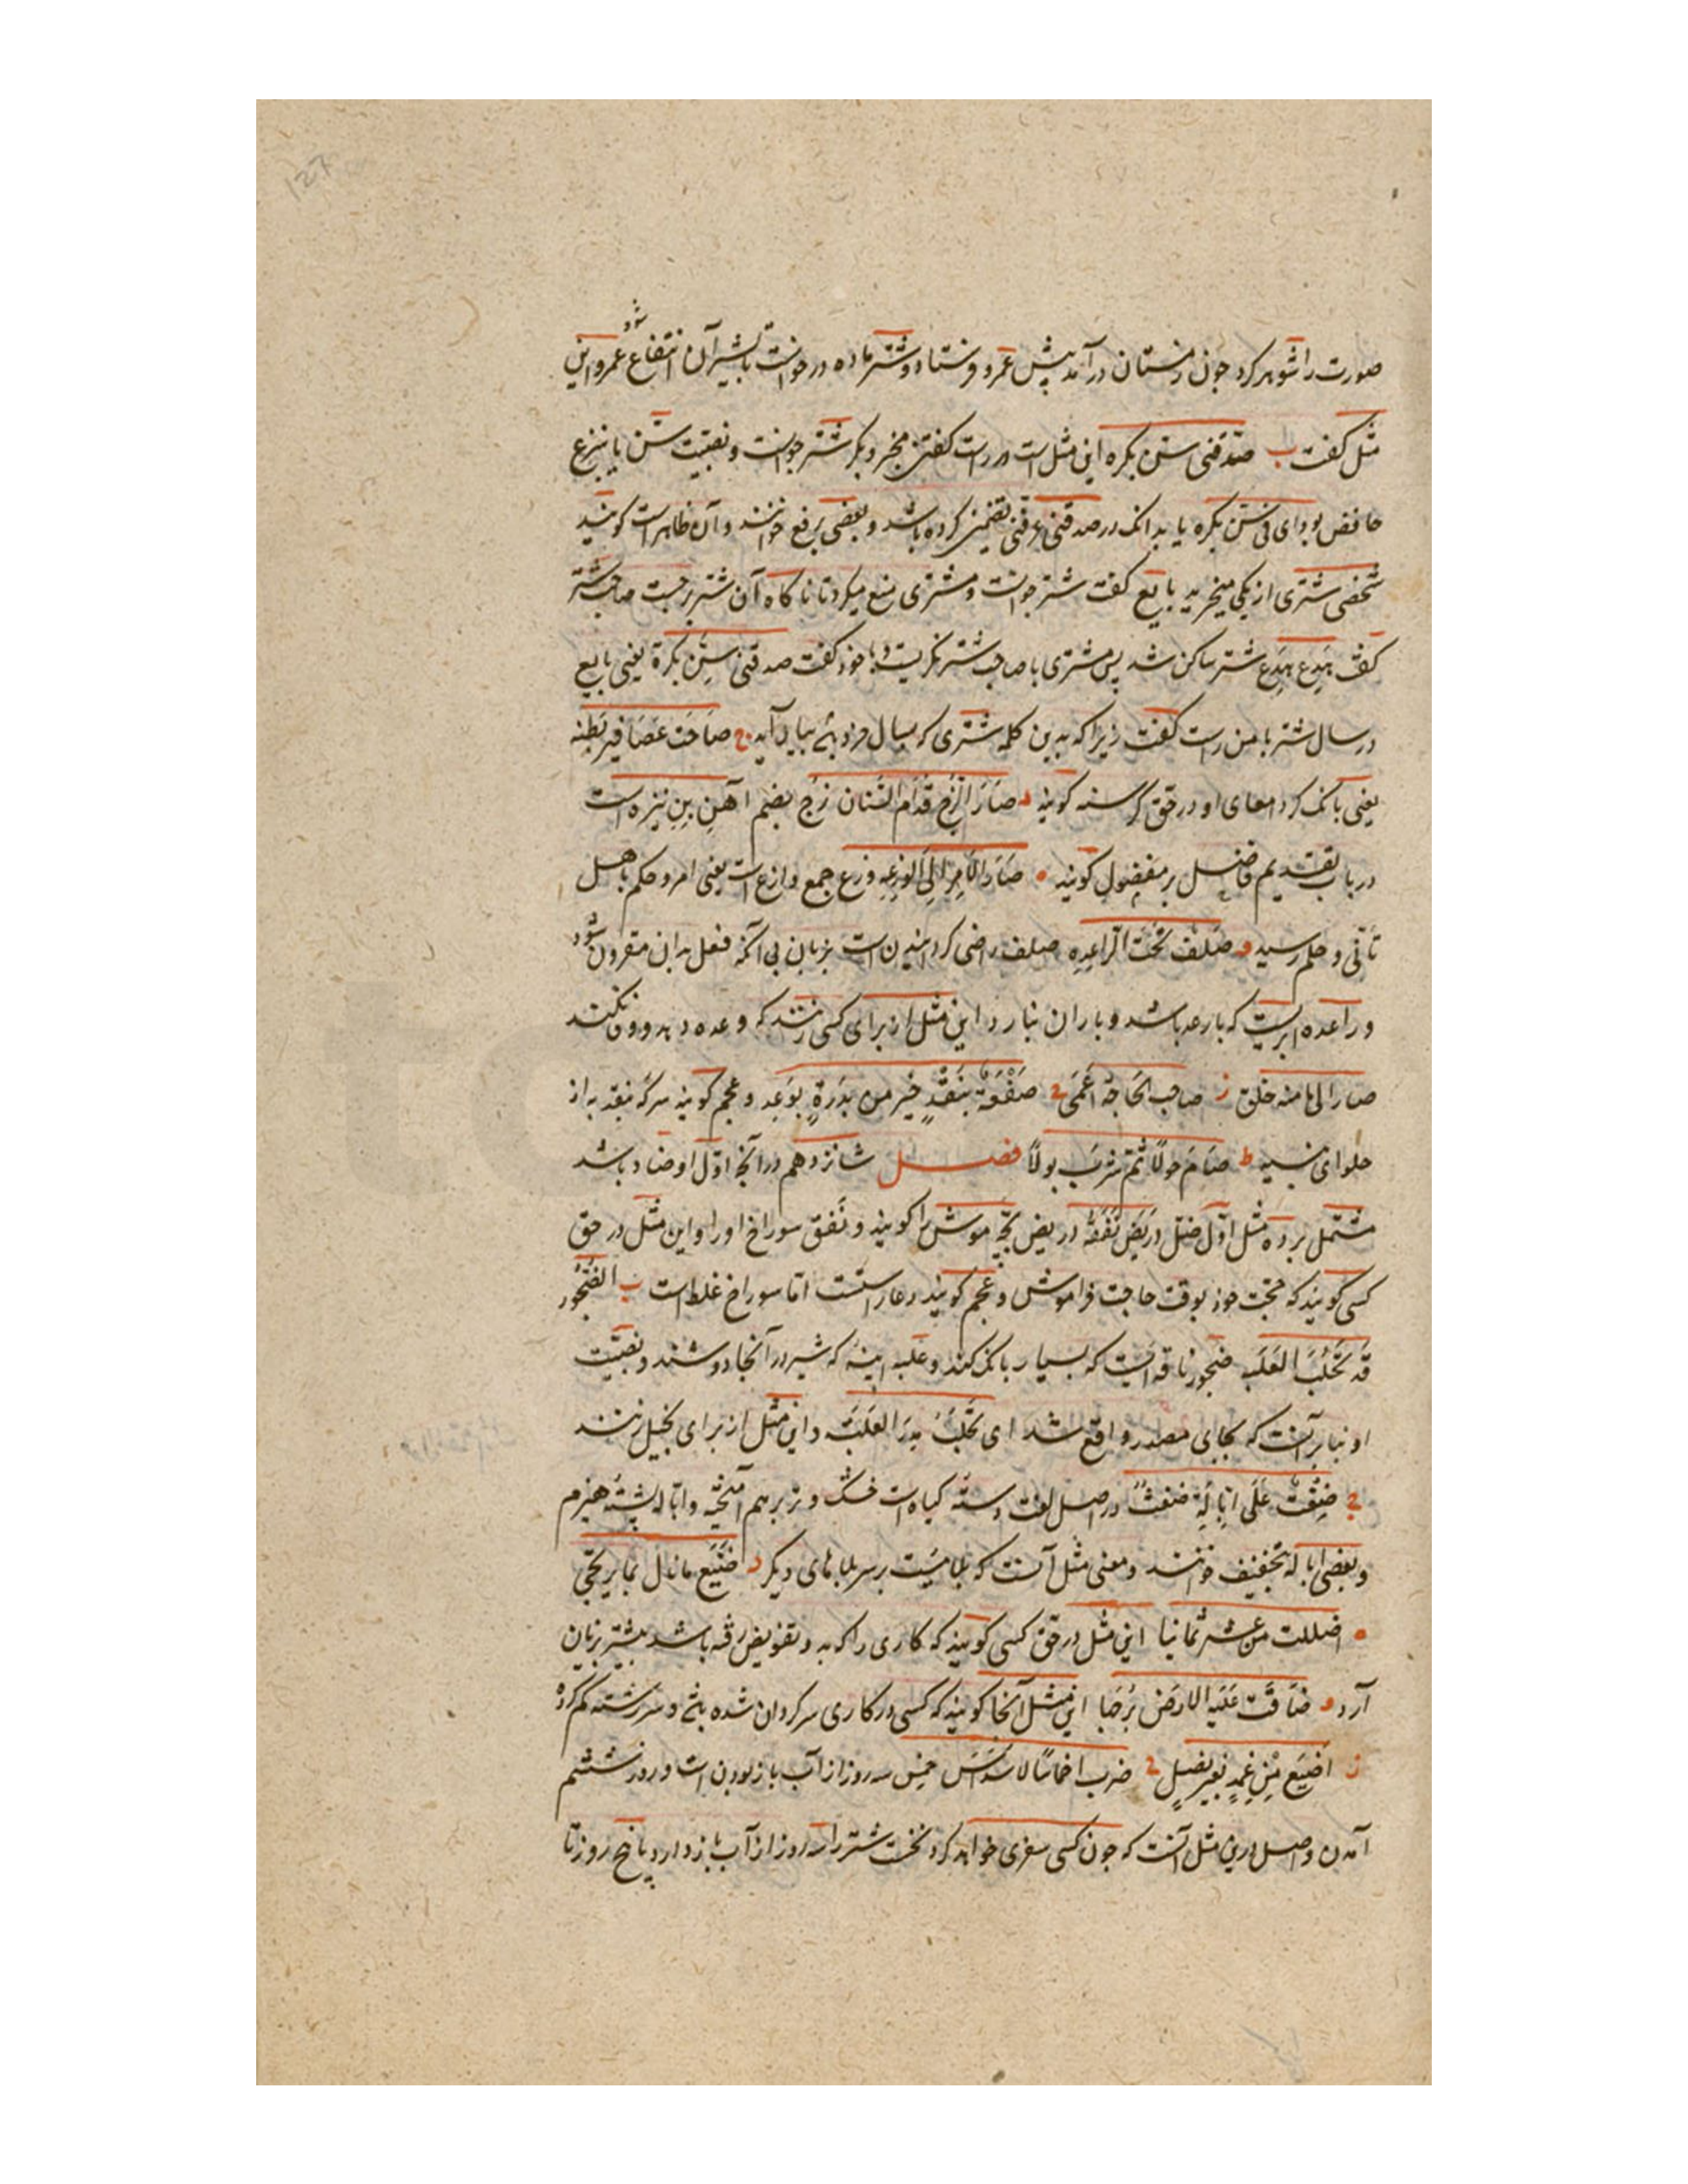 صورت را شوهر کرد چون زمستان درآمد پیش عمرو فرستاد و شتر ماده درخواست تا بشیر آن انتفاع شود عمرو این
مثل گفت ب صدقنی سن بکره این مثل است در راست گفتن مخبر و بکر شتر جوانست و نصبیت سن یا بنزع
خافض بود ای فی سن بکره یا بدانک در صدقنی عرفنی تضمین کرده باشد و بعضی برفع خوانند و آن ظاهر است کویند
شخصی شتری از یکی میخرید بایع گفت شتر جوانست و مشتری منع میکرد تا ناکاه آن شتر برجست صاحب شتر
گفت هدع هدع شتر ساکن شد پس مشتری با صاحب شتر نکریست و با خود گفت صدقنی سن بکرة یعنی بایع
در سال شتر با من راست گفت زیرا که بدین کلمه شتری که بسال خرد باشد بیارامد ج صاحت عصافیر بطنه
یعنی بانک کرد امعای او در حق گرسنه کویند د صار الزج قدام السنان زج بضم آهن بن نیزه است
در باب تقدیم فاضل بر مفضول کویند ه صار الامر الی الوزعه وزع جمع وازع است یعنی امر و حکم باهل
تأنی و حلم رسید و صلف تحت الراعده صلف راضی کردانیدن است بزبان بی آنکه فعل بدان مقرون شود
و راعده ابریست که با رعد باشد و باران نبارد این مثل از برای کسی زنند که وعده دهد و وفا نکند
صار الی ما منه خلق ز صاحب الحاجة اعمی ح صفعة بنقد خیر من بدرة بوعد و عجم کویند سرکه بنقد به از
حلوای نسیه ط صام حولا ثم شرب بولا فصل شانزدهم در آنچ اول او ضاد باشد
مشتمل بر ده مثل اول ضل دریص نفقه دریص بچه موش را کویند و نفق سوراخ او را و این مثل در حق
کسی کویند که حجت خود بوقت حاجت فراموش و عجم کویند دعا راستست اما سوراخ غلط است ب الضجور
قد تحلب العلبه ضجور ناقه ایست که بسیار بانک کند و علبه انیه که شیر در آنجا دوشند و نصبیت
او بنا بر آنست که بجای مصدر واقع شد ای تحلب بدر العلبة و این مثل از برای بخیل زنند
ج ضغث علی ابالة ضغث در اصل لغت دسته کیاه است خشک و تر برهم آمیخته و اباله پشته هیزم
و بعضی اباله بتخفیف خوانند و معنی مثل آنست که بلاییست بر سر بلاهای دیگر د ضیع مانال بما یرتجی
ه اضللت من عشر ثمانیا این مثل در حق کسی کویند که کاری را که به او تفویض رفته باشد بیشتر بزیان
آرد و ضاقت علیه الارض برحبا این مثل آنجا کویند که کسی در کاری سرکردان شده باشد و سررشته کم کرده
ز اضیع من غمد بغیر نصل ح ضرب اخماسا لاسداس خمس سه روز از آب باز بودن است و روز ششم
آمدن و اصل درین مثل آنست که چون کسی سفری خواهد کرد نخست شتر را سه روز از آب باز دارد پانج روز تا